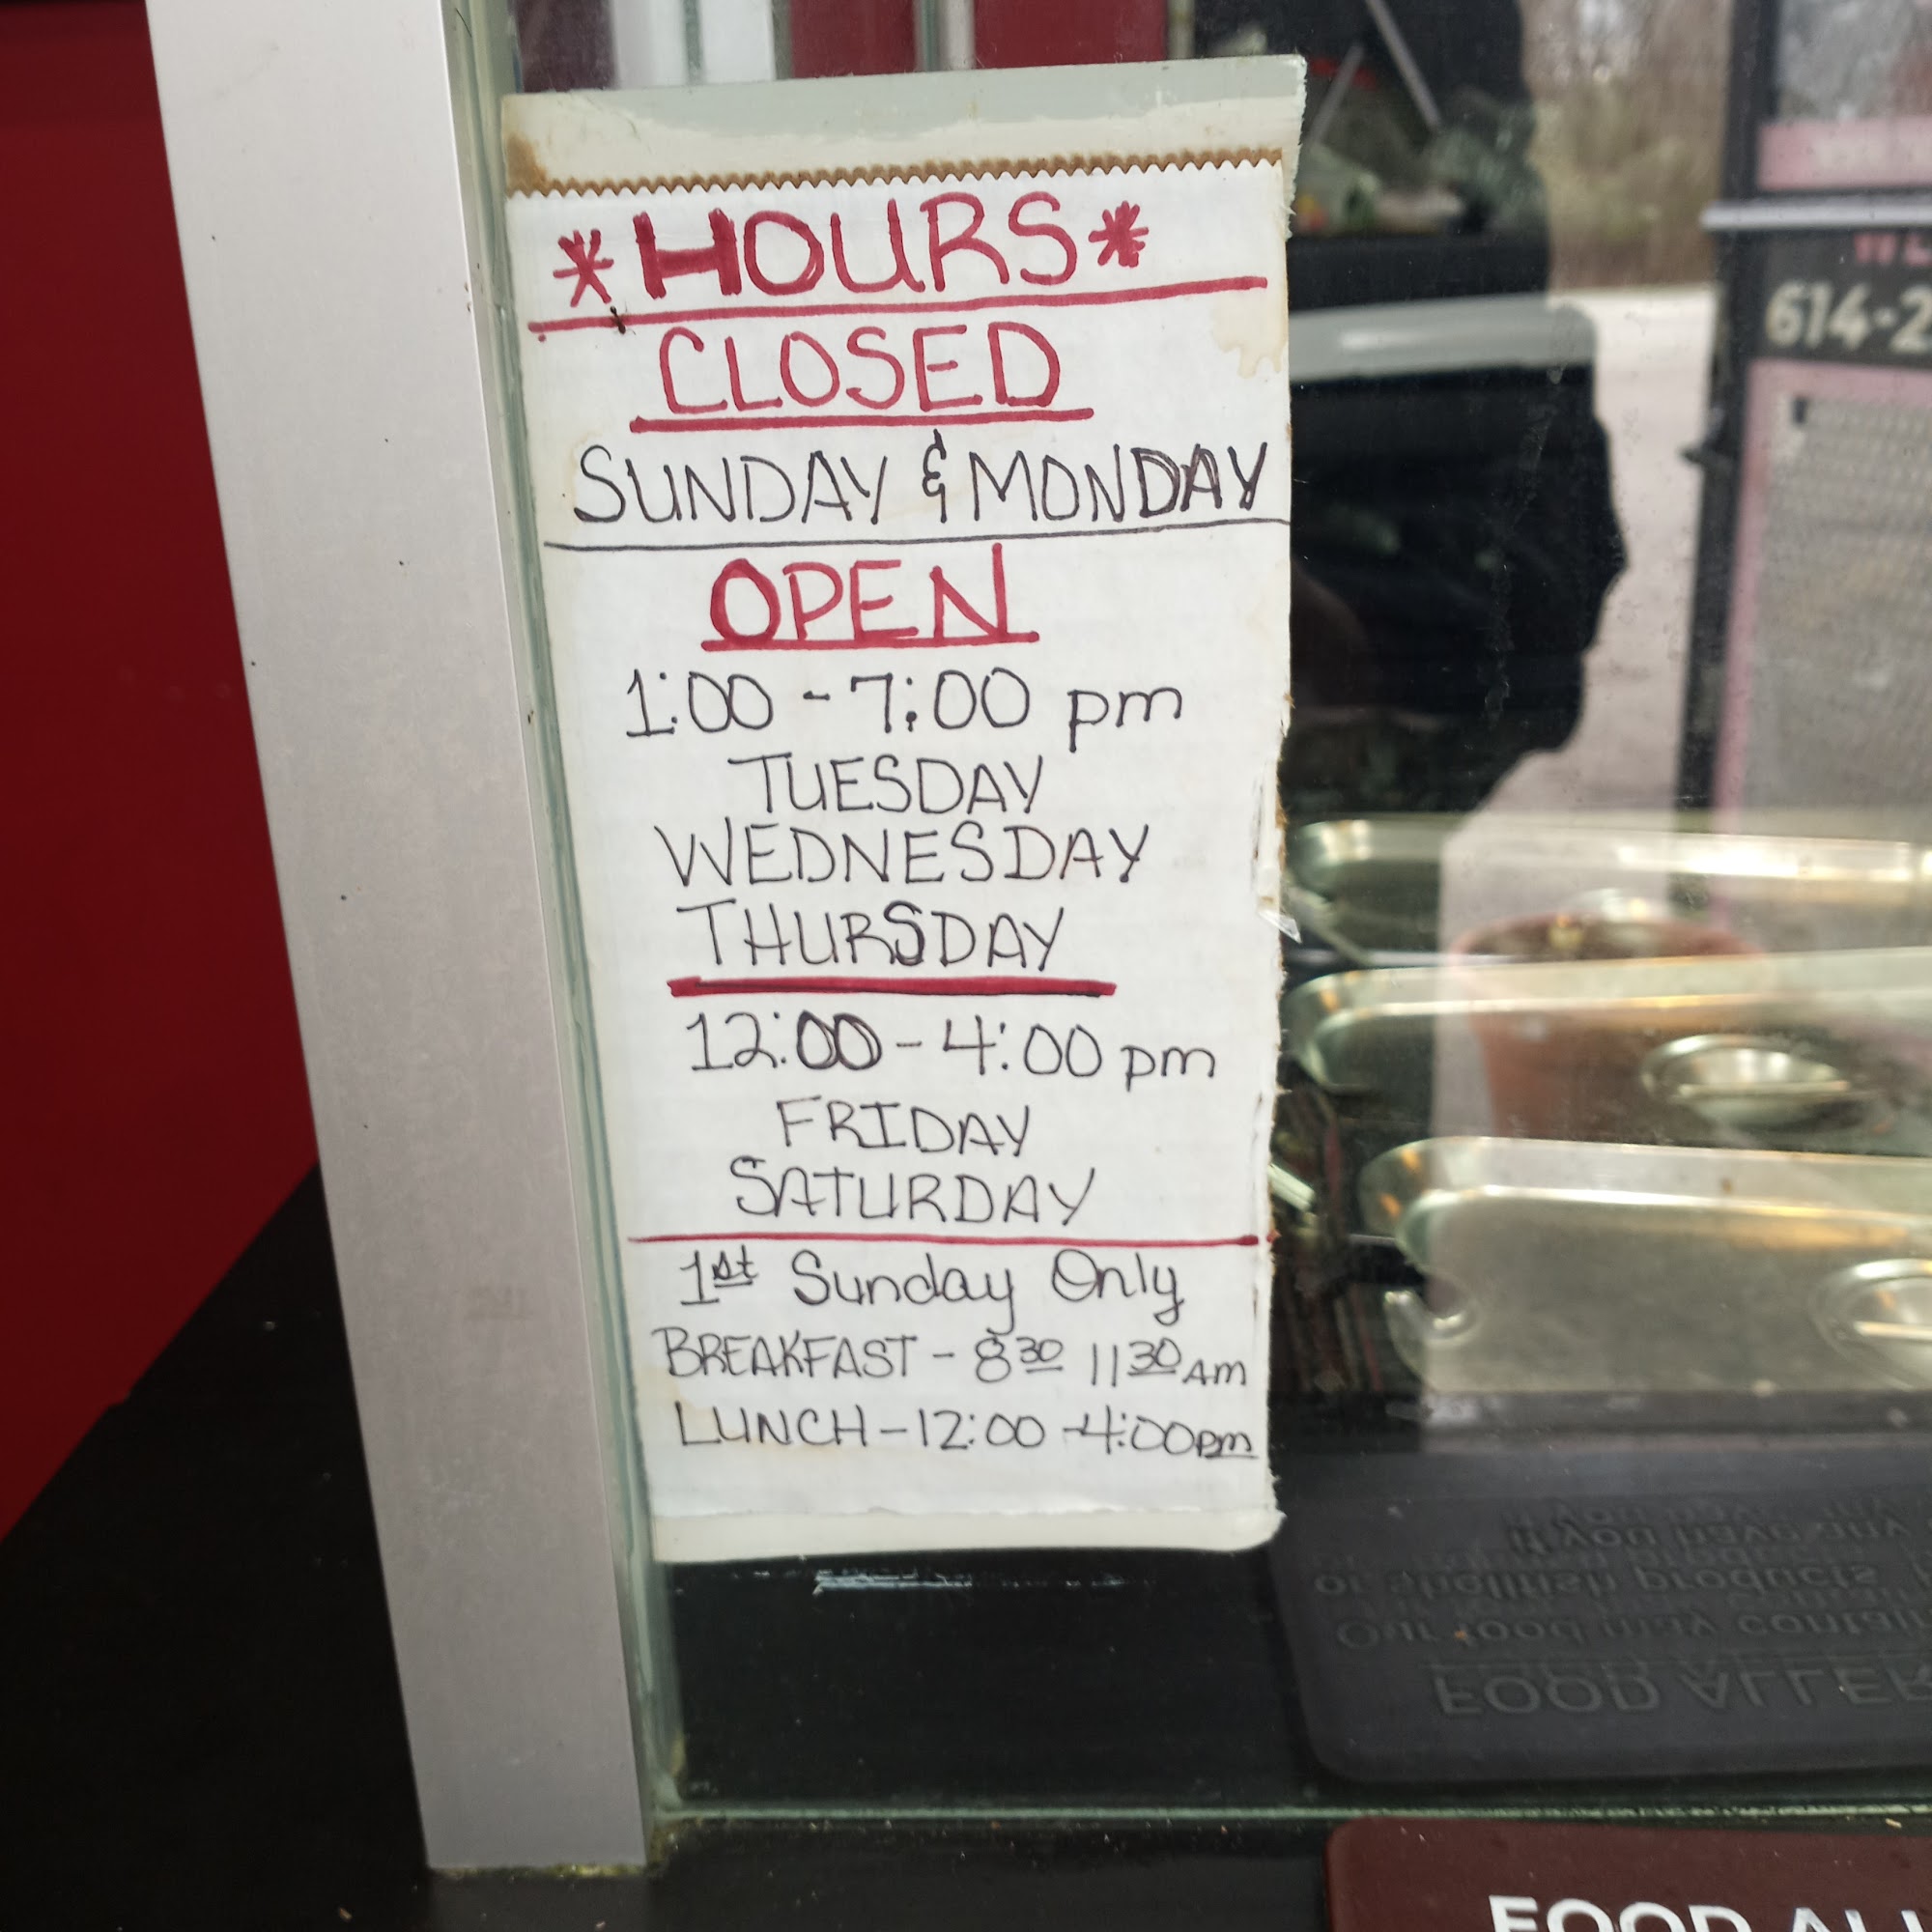 *HOURS*
CLOSED
SUNDAY & MONDAY
OPEN
1:00 - 7:00 pm
TUESDAY
WEDNESDAY
THURSDAY
12:00 - 4:00 pm
FRIDAY
SATURDAY
1st Sunday Only
BREAKFAST - 8 30 11 30 AM
LUNCH - 12:00 - 4:00 pm
614-2
If you have any
or shellfish products
Our food may contain
FOOD ALLER
FOOD ALL